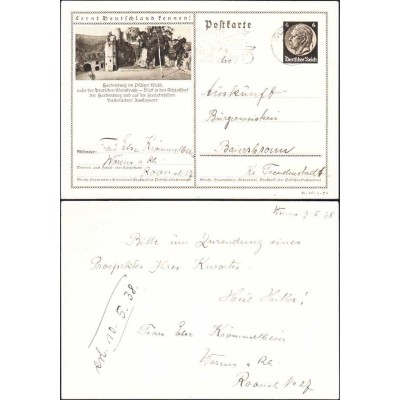 Lernt Deutschland kennen!
Postkarte
6 6
Deutsches Reich
Hardenburg im Pfälzer Wald,
nahe der Deutschen Weinstraße — Blick in den Schloßhof
der Hardenburg und auf die
Auskunft
Bürgermeister
Baiersbronn
Kr. Freudenstadt
Absender: Frau Else Krömmelbein
Worms a. Rh.
27
Worms 9.5.38
Bitte um Zusendung eines
Prospektes Ihres Kurortes.
Heil Hitler!
Frau Else Krömmelbein
Worms a. Rh.
No 27
erl. 10.5.38.